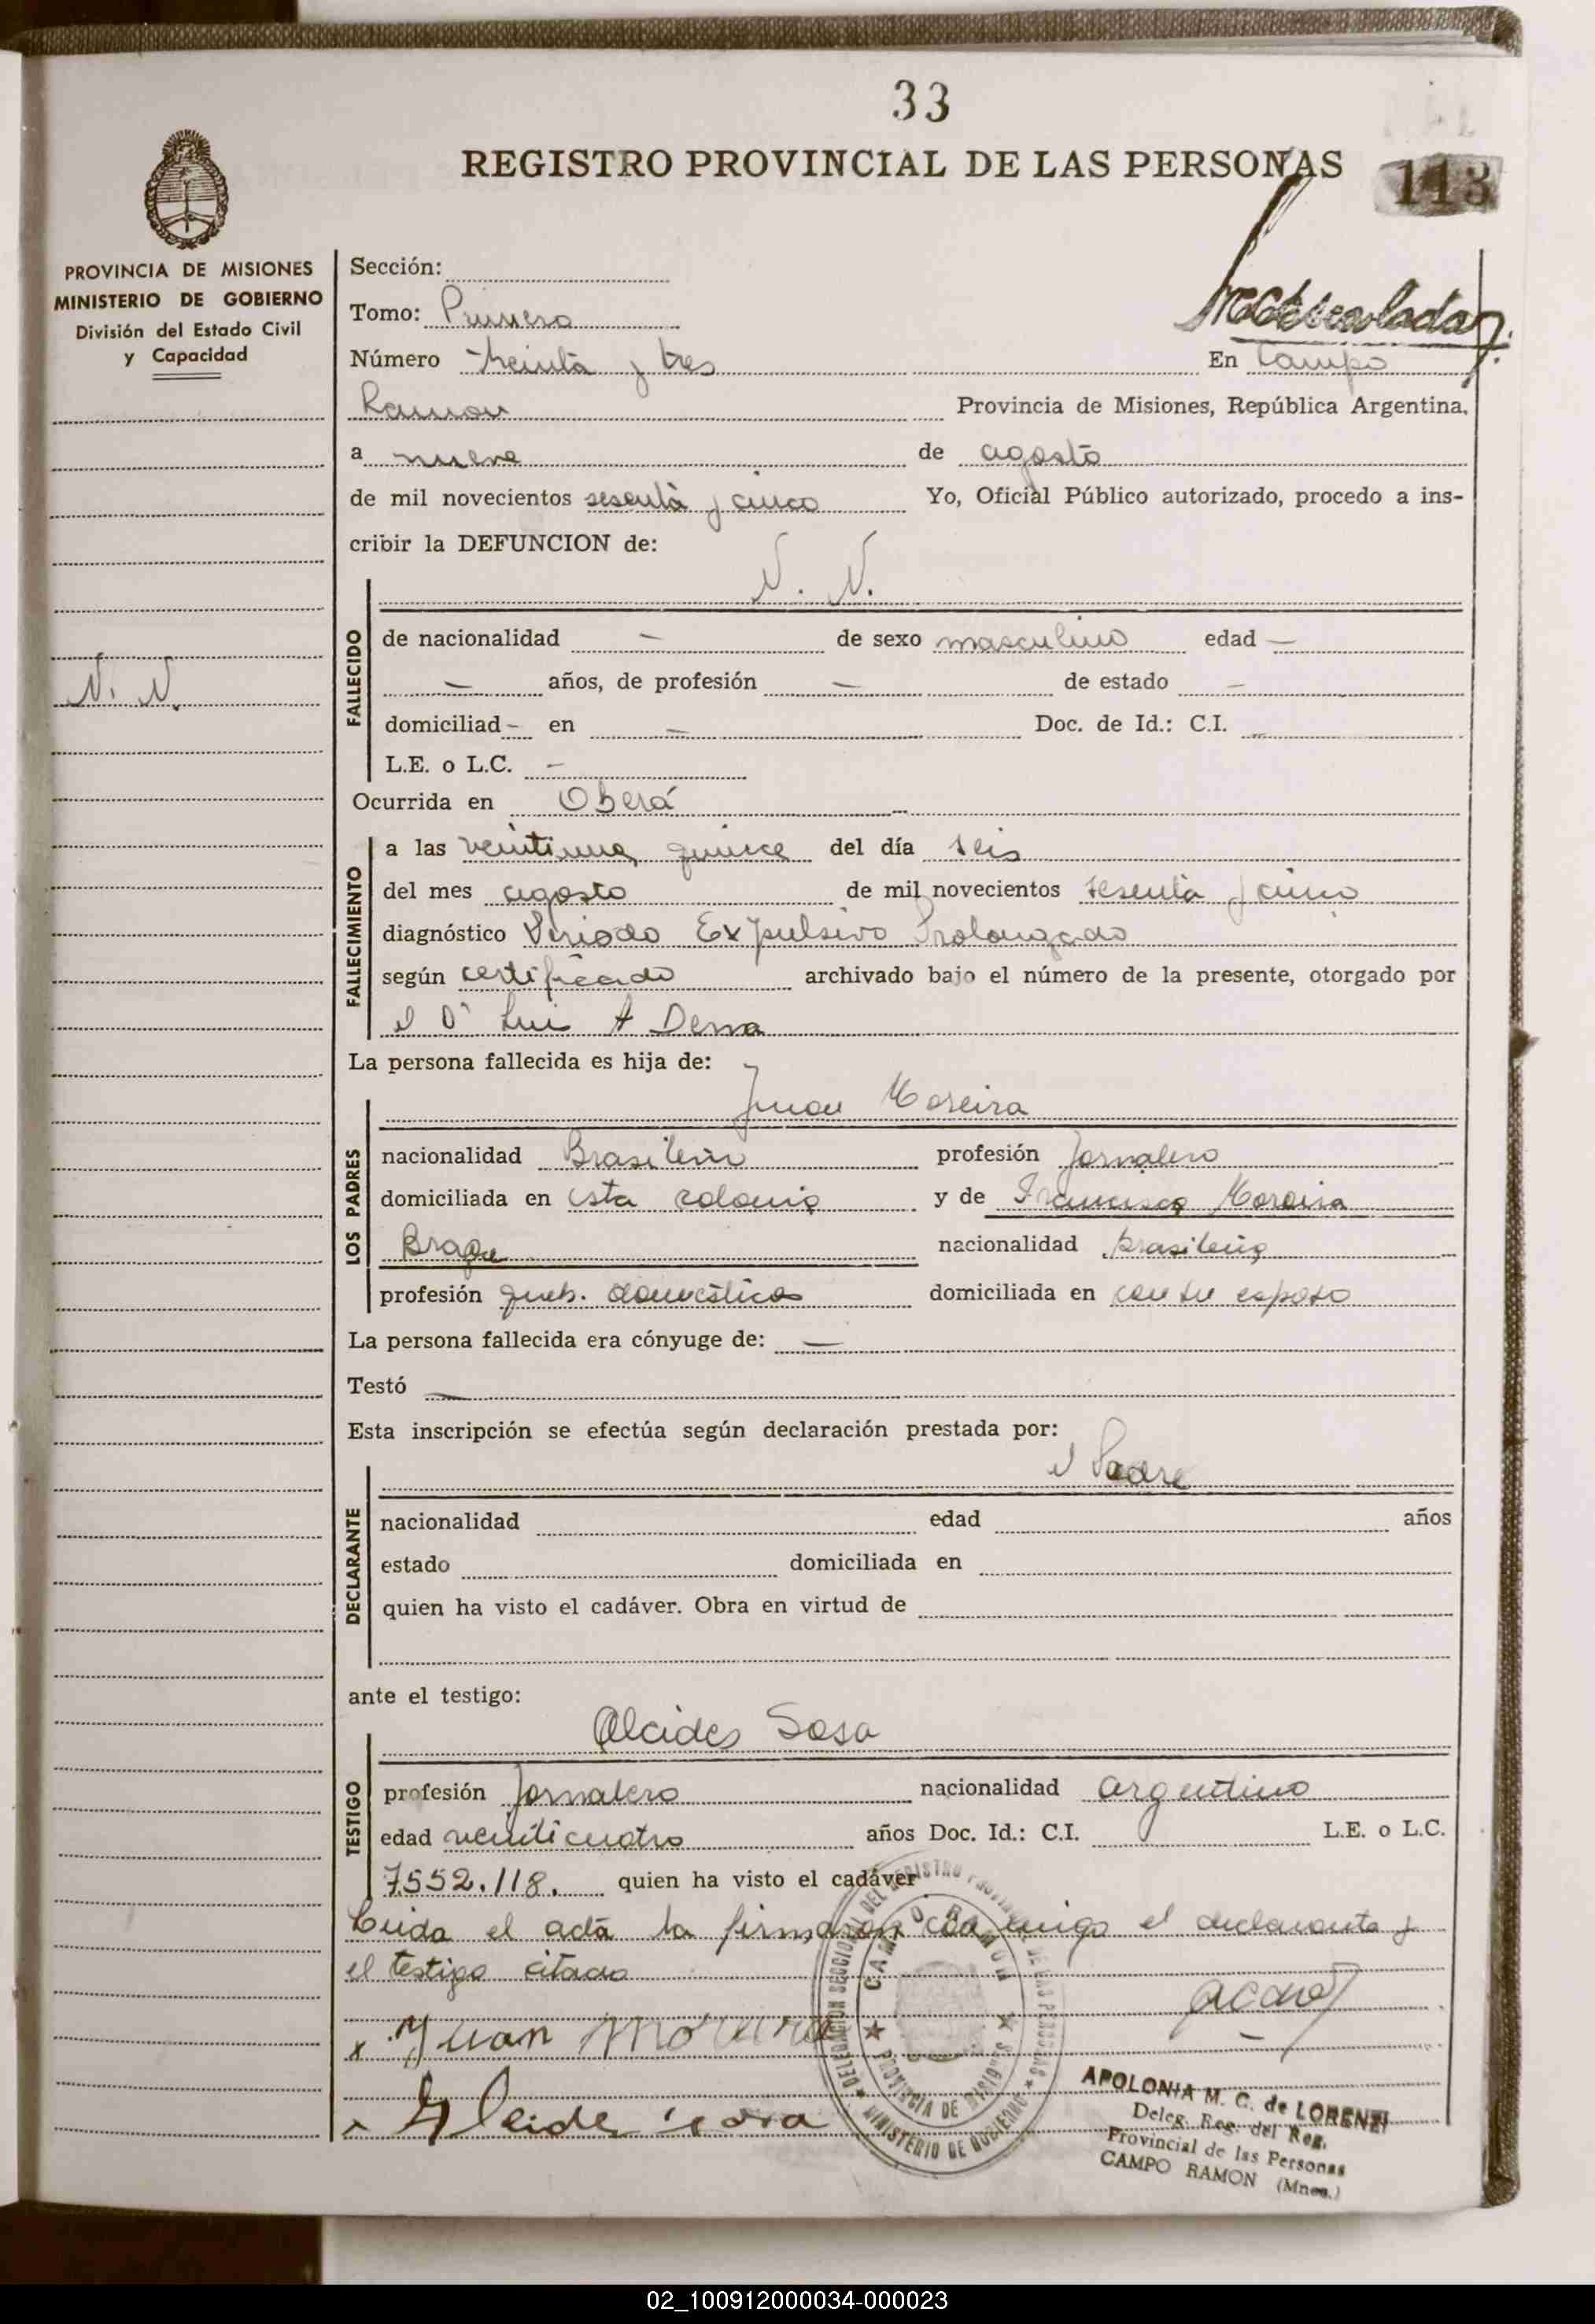 33
REGISTRO PROVINCIAL DE LAS PERSONAS
113
PROVINCIA DE MISIONES
MINISTERIO DE GOBIERNO
División del Estado Civil
y Capacidad
Sección:
Tomo: Primero
Número treinta y tres En Campo
Ramon Provincia de Misiones, República Argentina,
a nueve de agosto
de mil novecientos sesenta y cinco Yo, Oficial Público autorizado, procedo a ins-
cribir la DEFUNCION de:
N. N.
N. N.
FALLECIDO
de nacionalidad — de sexo masculino edad —
— años, de profesión — de estado —
domiciliad - en — Doc. de Id.: C.I. —
L.E. o L.C. —
Ocurrida en Oberá
FALLECIMIENTO
a las veintiuna quince del día seis
del mes agosto de mil novecientos sesenta y cinco
diagnóstico Periodo Expulsivo Prolongado
según certificado archivado bajo el número de la presente, otorgado por
el Dr Luis A
La persona fallecida es hija de:
Juan Moreira
LOS PADRES
nacionalidad Brasilera profesión Jornalero
domiciliada en esta colonia y de Francisca Moreira
Braga nacionalidad brasileña
profesión queh. domésticos domiciliada en con su esposo
La persona fallecida era cónyuge de: —
Testó —
Esta inscripción se efectúa según declaración prestada por:
el Padre
DECLARANTE
nacionalidad edad años
estado domiciliada en
quien ha visto el cadáver. Obra en virtud de
ante el testigo:
Alcides Sosa
TESTIGO
profesión Jornalero nacionalidad argentino
edad veinticuatro años Doc. Id.: C.I. L.E. o L.C.
7552.118. quien ha visto el cadáver
Leida el acta la firmaron conmigo el declarante y
el testigo citado
x Juan Moreira
DELEGACION SECCIONAL DEL REGISTRO PROVINCIAL DE LAS PERSONAS
CAMPO RAMON
PROVINCIA DE MISIONES
MINISTERIO DE GOBIERNO
APOLONIA M. C. de LORENZI
Deleg. Reg. del Reg.
Provincial de las Personas
CAMPO RAMON (Mnes.)
02_100912000034-000023